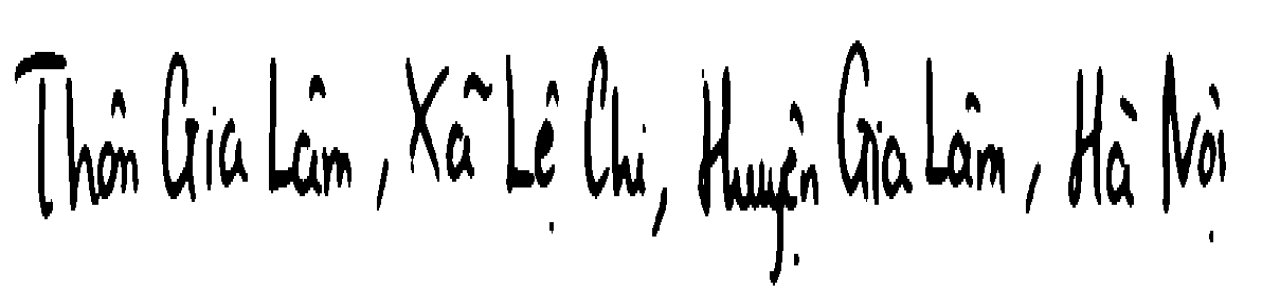 Thôn Gia Lâm, Xã Lệ Chi, Huyện Gia Lâm, Hà Nội